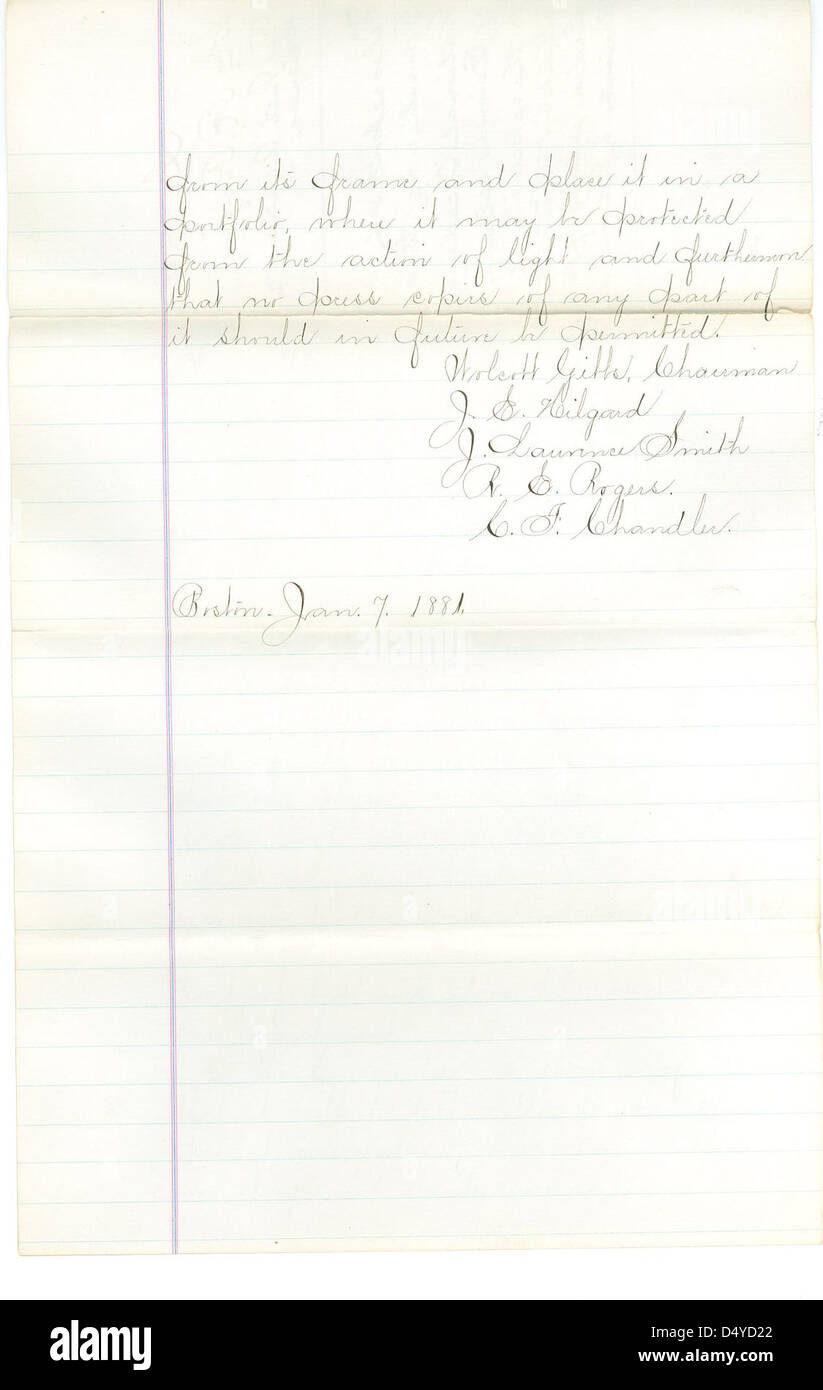 from its frame and place it in a
portfolio, where it may be protected
from the action of light and furthermore
that no press copies of any part of
it should in future be permitted.
Wolcott Gibbs, Chairman
J. E. Hilgard
J. Laurence Smith
R. E. Rogers.
C. F. Chandler.
Boston. Jan. 7. 1881.
alamy
alamy
alamy
alamy
Image ID: D4YD22
www.alamy.com